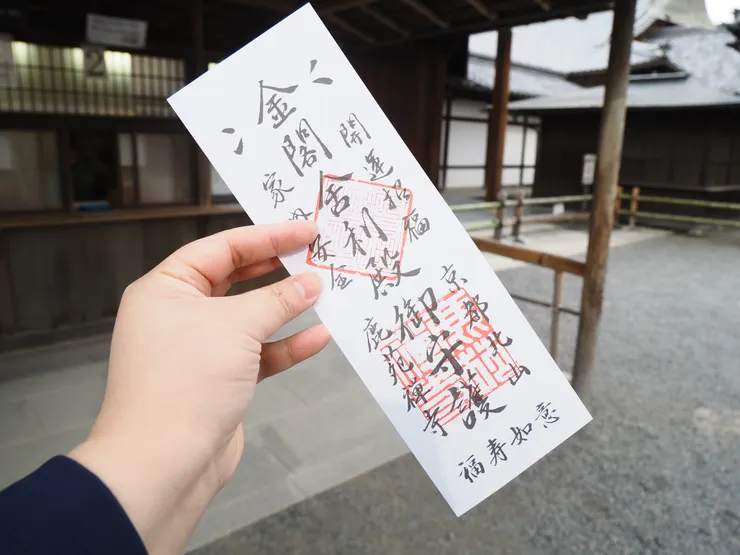 開運招福
金閣舎利殿御守護
家内安全
京都北山
鹿苑禅寺
福寿如意
2